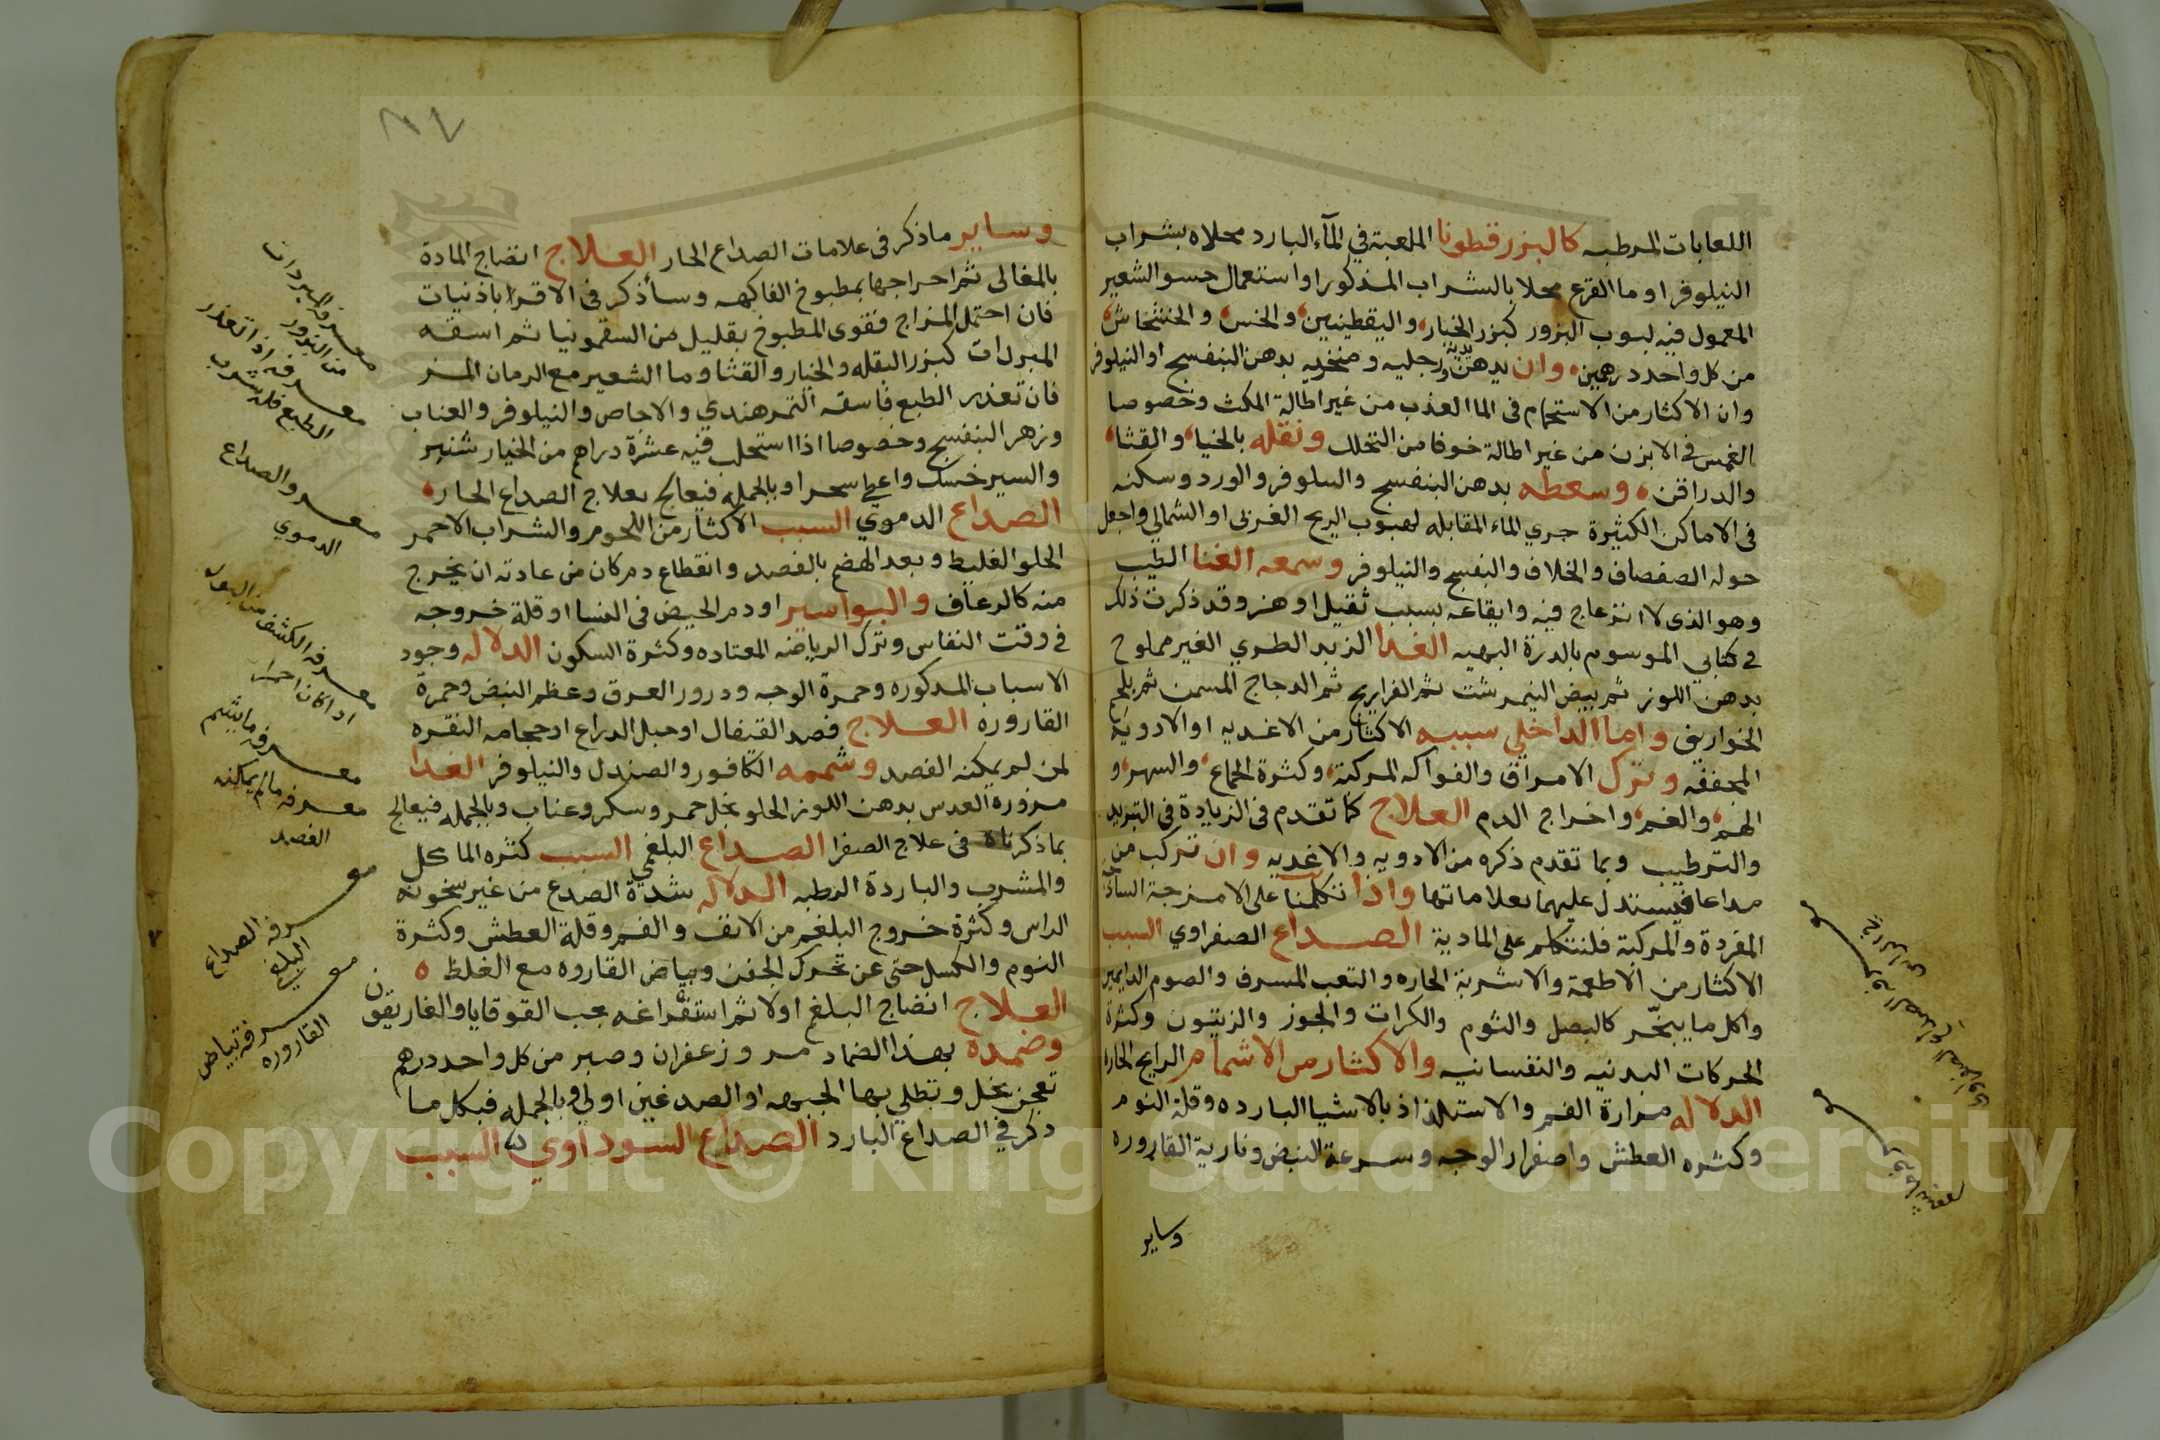 اللعابات المرطبه كالبزر قطونا الملعبة في المآء البارد محلاه بشراب
النيلوفر او ما القرع محلا بالشراب المذكور او استعمال حسو الشعير
المعمول فيه لبوب البزور كبزر الخيار واليقطينين والخس والخشخاش
من كل واحد درهمين وان يدهن يديه ورجليه ومنخريه بدهن البنفسج او النيلوفر
وان الاكثار من الاستحمام في الما العذب من غير اطالة المكث وخصوصا
الغمس في الابزن من غير اطالة خوفا من التحلل ونقله بالخيا والقثا
والدراقن وسعطه بدهن البنفسج والنيلوفر والورد وسكنه
في الاماكن الكثيرة جري الماء المقابله لهبوب الريح الغربي او الشمالي واجعل
حوله الصفصاف والخلاف والبنفسج والنيلوفر وسمعه الغنا الطيب
وهو الذي لا انزعاج فيه وايقاعه بسبب ثقيل او هزز وقد ذكرت ذلك
في كتابي الموسوم بالدرة البهيه الغدا الزبد الطري الغير مملوح
بدهن اللوز ثم بيض النيمرشت ثم الفراريج ثم الدجاج المسمن ثم بلحم
الخواريق واما الداخلي سببه الاكثار من الاغديه او الادوية
المجففه وترك الامراق والفواكه المركبة وكثرة الجماع والسهر و
الهم والغم واخراج الدم العلاج كما تقدم في الزيادة في التبريد
والترطيب وبما تقدم ذكره من الادويه والاغديه وان تركب من
مداعا فيستدل عليهما بعلاماتها واذا تكلمنا على الامزجة الساذجة
المفردة والمركبة فلنتكلم على المادية الصداع الصفراوي السبب
الاكثار من الاطعمة والاشربة الحاره والتعب المسرف والصوم الدايم
واكل ما يبخّر كالبصل والثوم والكرات والجوز والزيتون وكثرة
الحركات البدنيه والنفسانيه والاكثار من الاشمام الرايح الحارا
الدلاله مرارة الفم والاستلذاذ بالاشيا البارده وقلة النوم
وكثره العطش واصفرار الوجه وسرعة النبض ونارية القاروره
وساير
وساير ما ذكر في علامات الصداع الحار العلاج انضاج المادة
بالمغالي ثم اخراجها بمطبوخ الفاكهه وسأذكر في الاقراباذنيات
فان احتمل المزاج فقوي المطبوخ بقليل من السقمونيا ثم اسقه
المبردات كبزر البقله والخيار والقثا وما الشعير مع الرمان المز
فان تعذر الطبع فاسقه التمر هندي والاجاص والنيلوفر والعناب
وزهر البنفسج وخصوصا اذا استحلب فيه عشرة دراهم من الخيار شنبر
والسيرخسك واعطي سحرا وبالجمله فيعالج بعلاج الصداع الحار
الصداع الدموي السبب الاكثار من اللحوم والشراب الاحمر
الحلو الغليظ وبعد الهضم بالفصد وانقطاع دم كان من عادته ان يخرج
منه كالرعاف والبواسير او دم الحيض في النسا او قلة خروجه
في وقت النفاس وترك الرياضه المعتاده وكثرة السكون الدلاله وجود
الاسباب المذكوره وحمرة الوجه ودرور العرق وعظم النبض وحمرة
القاروره العلاج فصد القيفال او حبل الدراع او حجامه النقره
لمن لم يمكنه الفصد وشممه الكافور والصندل والنيلوفر الغدا
مزوره العدس بدهن اللوز الحلو بخل خمر وسكر وعناب وبالجمله فيعالج
بما ذكرناه في علاج الصفرا الصداع البلغمي السبب كثره الماكل
والمشرب والباردة الرطبه الدلاله شدة الصدع من غير سخونه
الراس وكثرة خروج البلغم من الانف والفم وقلة العطش وكثرة
النوم والكسل حتى عن تحرك الجفن وبياض القاروه مع الغلظ ه
العلاج انضاج البلغم اولا ثم استفراغه بحب القوقايا والغاريقون
وضمدة بهذا الضماد مر وزعفران وصبر من كل واحد درهم
تعجن بخل وتطلي بها الجبهه او الصدغين اولي وبالجمله فبكل ما
دكر في الصداع البارد الصداع السوداوي السبب
معرفة المبردات
من البزور
معرفه اذا تعذر
الطبع فله يشرب
معر والصداع
الدموي
معرفه الكشف من البول
ادا كان احمر
معرفه ما يشم
معرفه ما لم يمكنه
الفصد
معرفه الصداع
البلغمي
معرفة بياض
القاروره
Copyright © King Saud University